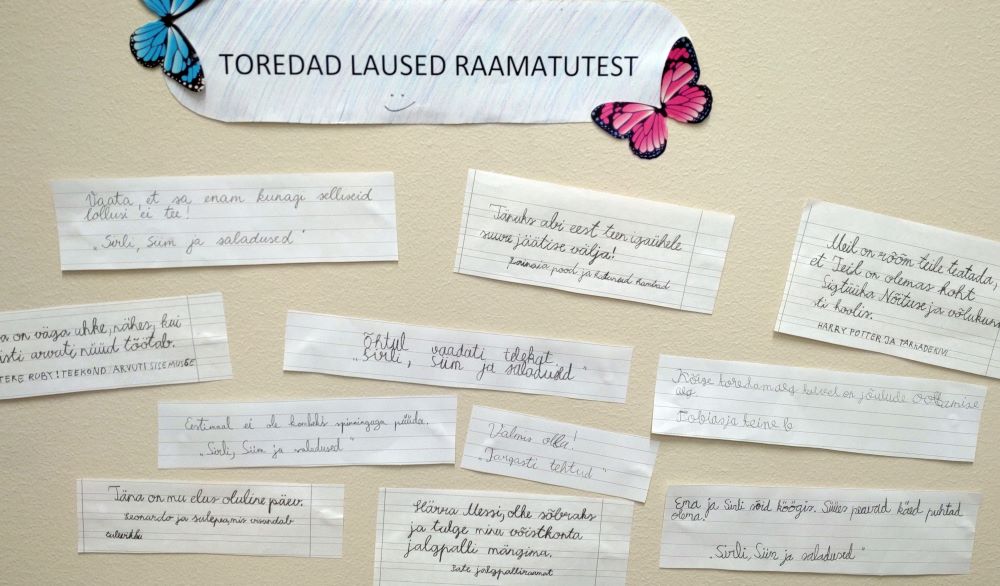 TOREDAD LAUSED RAAMATUTEST
Vaata, et sa enam kunagi selliseid
lollusi ei tee!
„Sirli, Siim ja saladused"
Tänuks abi eest teen igaühele
suure jäätise välja!
pood ja kotured
Meil on rõõm teile teatada,
et Teil on olemas koht
Sigtüüka Nõiduse ja võlukuns
ti koolis.
HARRY POTTER JA TARKADEKIVI
a on väga uhke, nähes, kui
isti arvuti nüüd töötab.
TERE RUBY! TEEKOND ARVUTI SISEMUSSE
Õhtul vaadati telekat.
„Sirli, Siim ja saladused"
Kõige toredam aeg talvel on jõulude ootamise
aeg.
Tobias ja teine b
Eestimaal ei ole kombeks spinninguga püüda.
„Sirli, Siim ja saladused"
Valmis olla!
„Targasti tehtud"
Täna on mu elus oluline päev.
Leonardo ja sulepea, mis visandab
tulevikku
Härra Messi, olge sõbraks
ja tulge minu võistkonta
jalgpalli mängima.
Jate jalgpalliraamat
Ema ja Sirli sõid köögis. Süües peavad käed puhtad
olema.
„Sirli, Siim ja saladused"